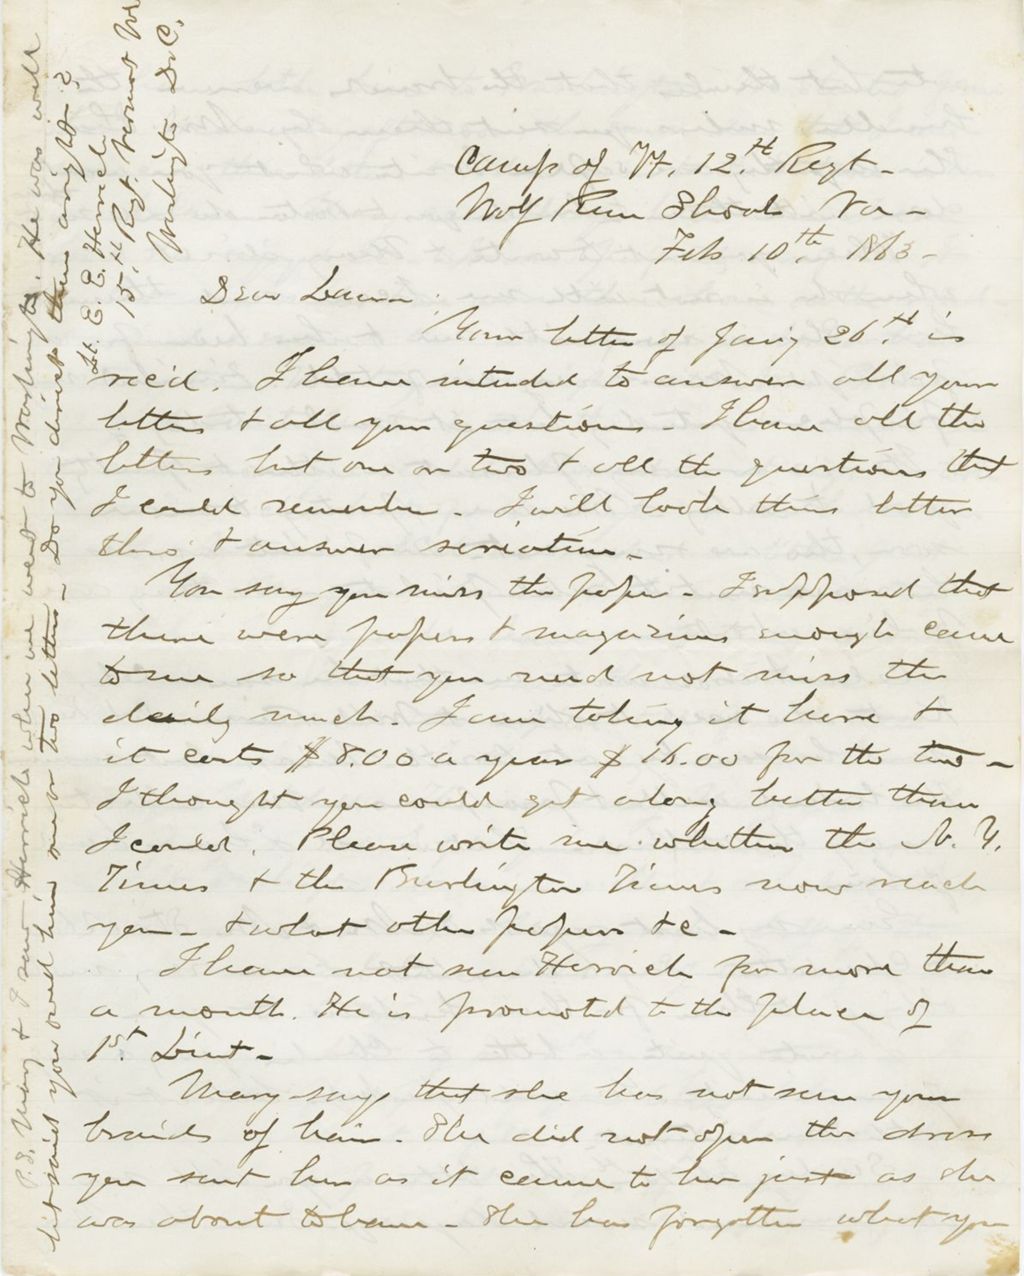 Camp of Vt. 12th Regt -
Wolf Run Shoals Va -
Feb 10th 1863 -
Dear Laura
Your letter of Jany 26th is
rec'd. I have intended to answer all your
letters & all your questions - I have all the
letters but one or two & all the questions that
I could remember. I will look this letter
thro' & answer seriatim -
You say you miss the paper - I supposed that
there were papers & magazines enough came
to me so that you need not miss the
daily much. I am taking it here &
it costs $8.00 a year $16.00 for the two -
I thought you could get along better than
I could. Please write me whether the N. Y.
Times & the Burlington Times now reach
you - & what other papers &c -
I have not seen Herrick for more than
a month. He is promoted to the place of
1st Lieut -
Mary says that she has not seen your
braids of hair. She did not open the dress
you sent her as it came to her just as she
was about to leave - She has forgotten what you
P.S. Mary & I saw Herrick when we went to Washington. He was well
but said you owed him one or two letters - Do you direct them aright?
Lt. E. E. Herrick
15th Regt. Vermont
Washington D.C.